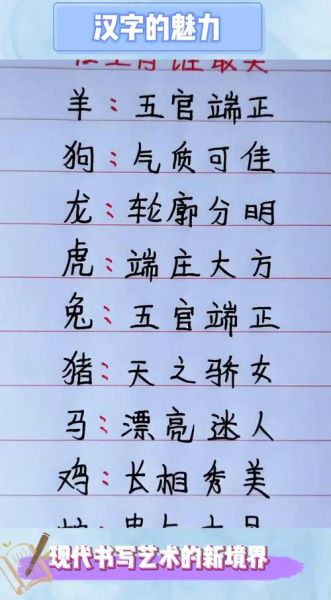 汉字的魅力
羊：五官端正
狗：气质可佳
龙：轮廓分明
虎：端庄大方
兔：五官端正
猪：天之骄女
马：漂亮迷人
鸡：长相秀美
现代书写艺术的新境界